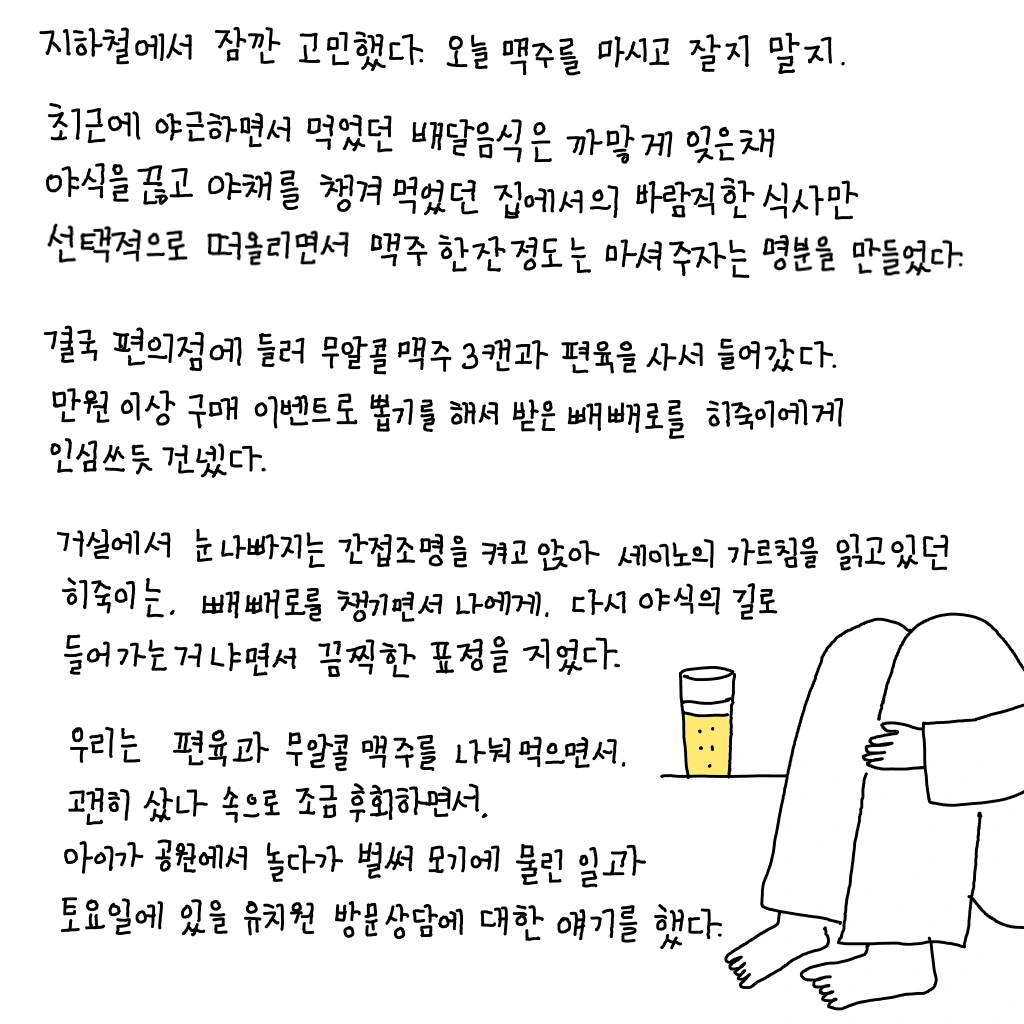 지하철에서 잠깐 고민했다. 오늘 맥주를 마시고 잘지 말지.
최근에 야근하면서 먹었던 배달음식은 까맣게 잊은채
야식을 끊고 야채를 챙겨먹었던 집에서의 바람직한 식사만
선택적으로 떠올리면서 맥주 한잔정도는 마셔주자는 명분을 만들었다.
결국 편의점에 들러 무알콜맥주 3캔과 편육을 사서 들어갔다.
만원 이상 구매 이벤트로 뽑기를 해서 받은 빼빼로를 히죽이에게
인심쓰듯 건넸다.
거실에서 눈나빠지는 간접조명을 켜고 앉아 세이노의 가르침을 읽고있던
히죽이는, 빼빼로를 챙기면서 나에게, 다시 야식의 길로
들어가는거냐면서 끔찍한 표정을 지었다.
우리는 편육과 무알콜 맥주를 나눠먹으면서,
괜히 샀나 속으로 조금 후회하면서,
아이가 공원에서 놀다가 벌써 모기에 물린 일과
토요일에 있을 유치원 방문상담에 대한 얘기를 했다.